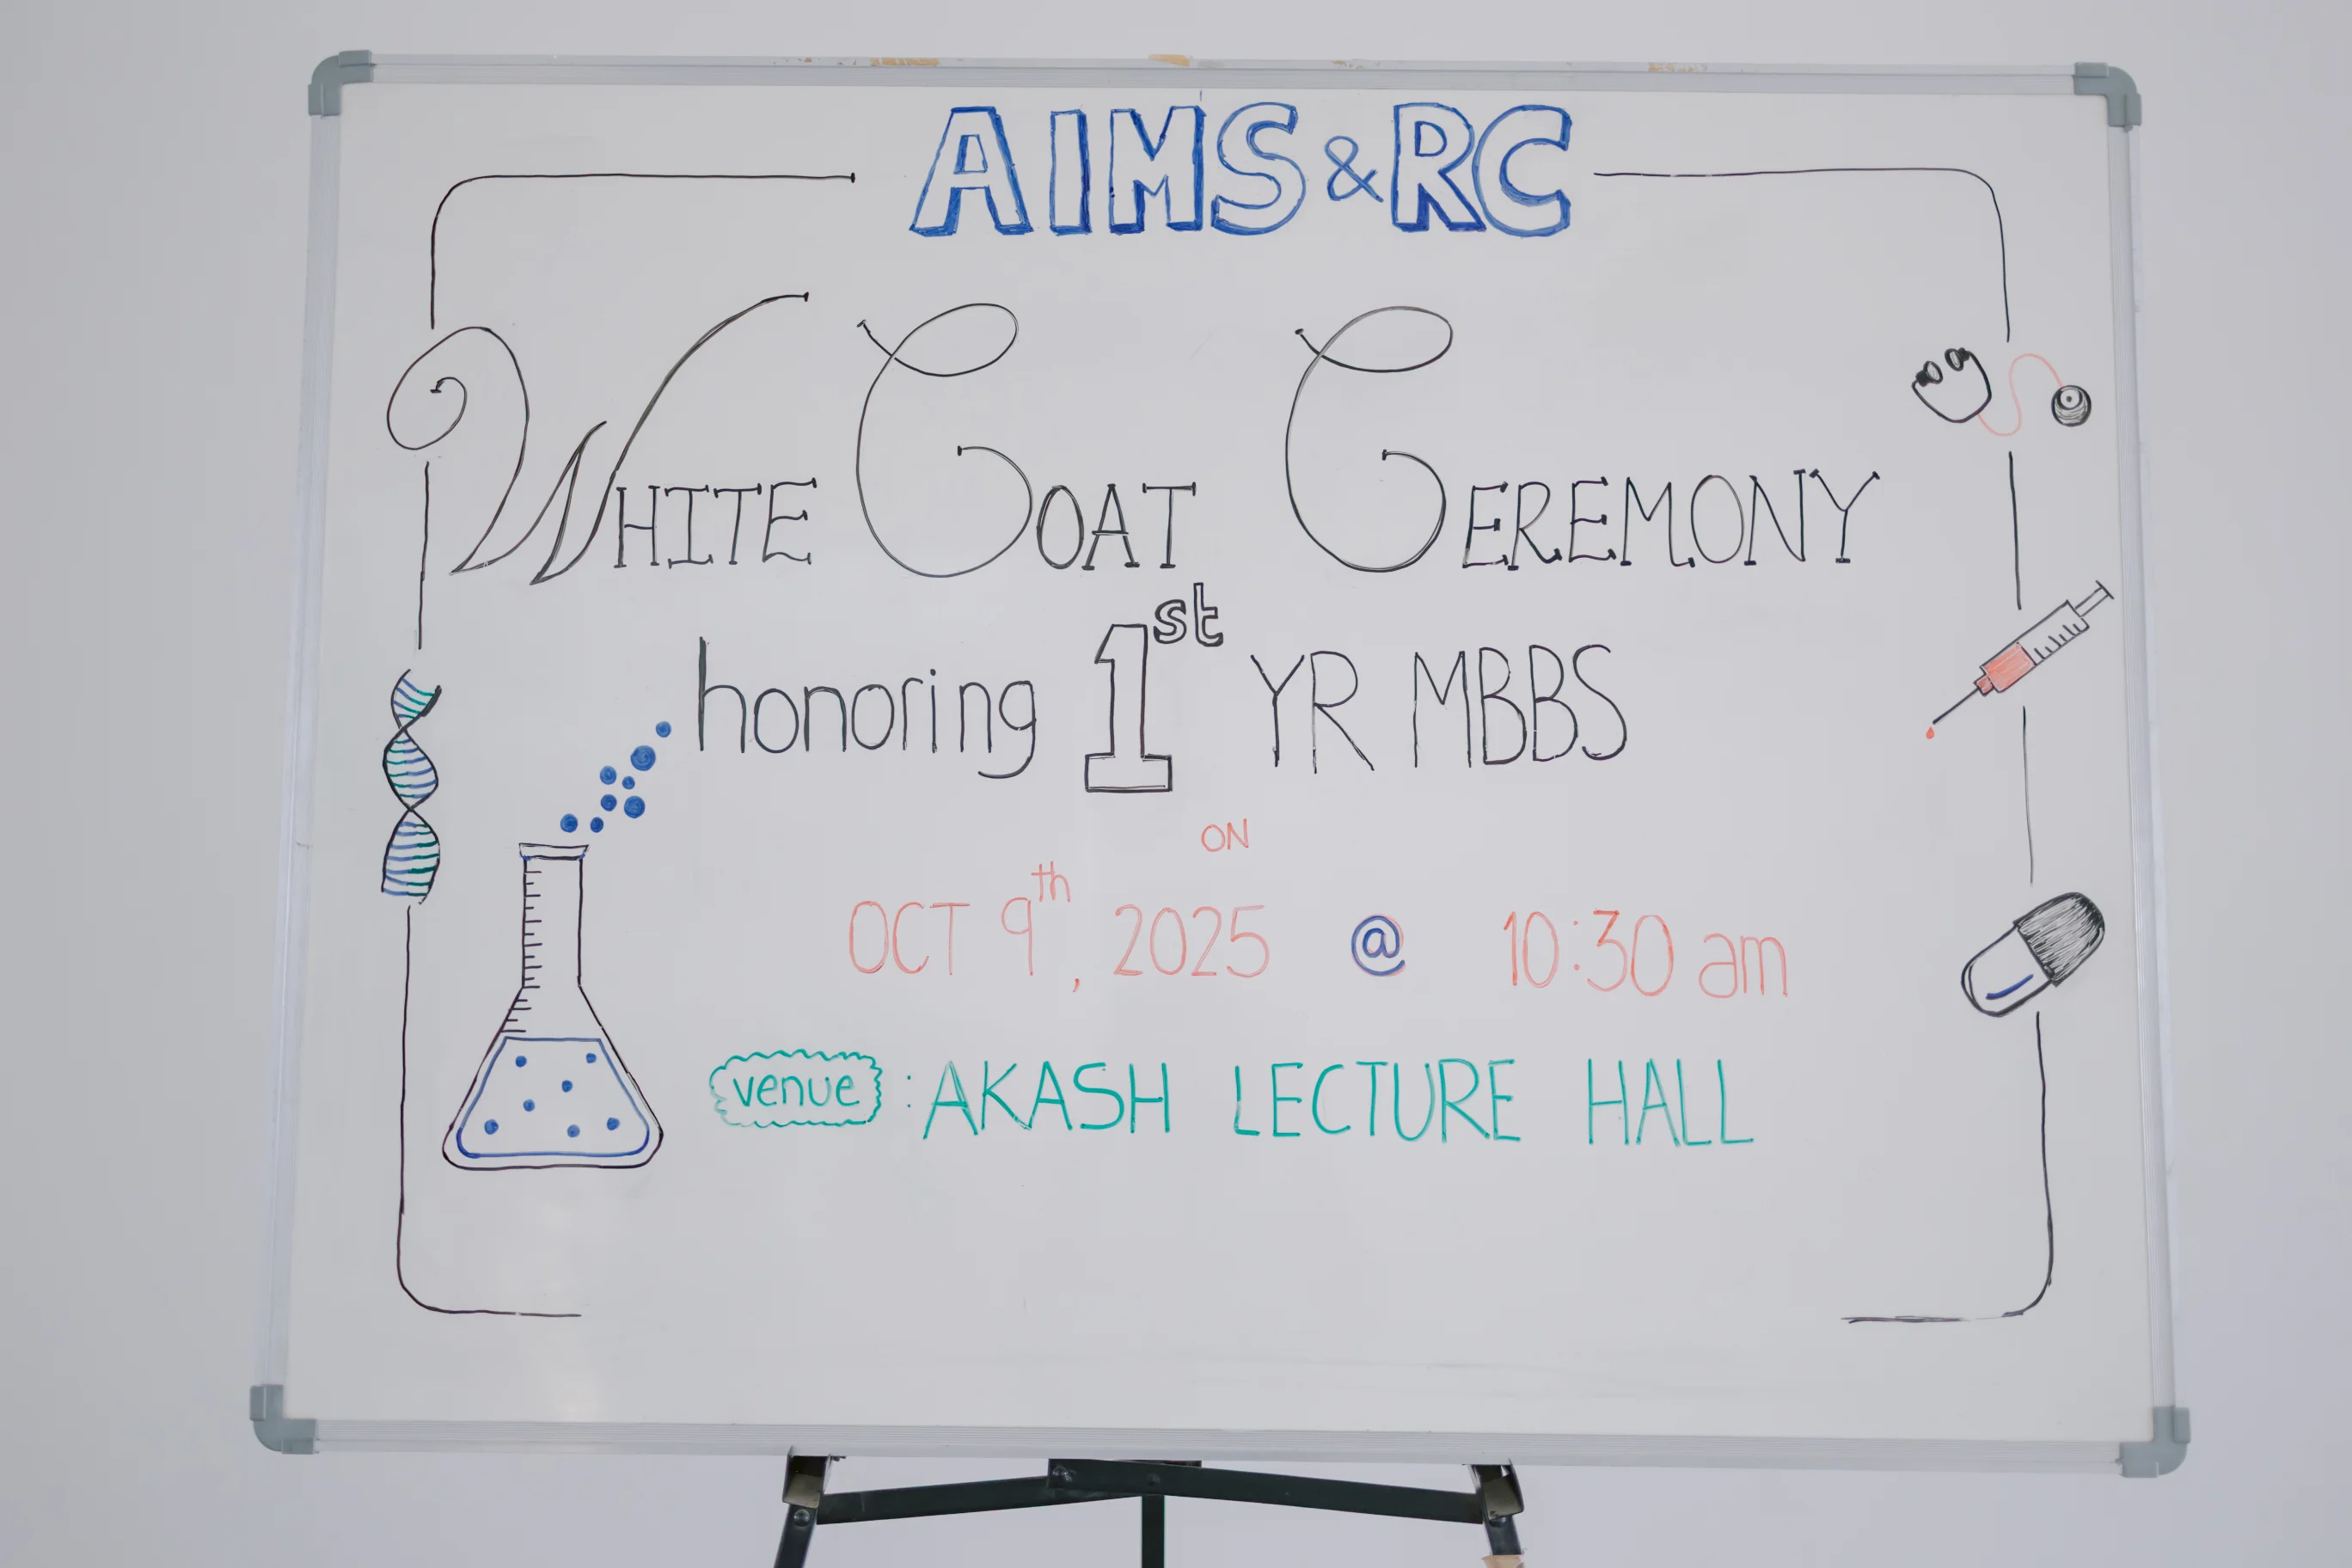 AIMS & RC
WHITE COAT CEREMONY
honoring 1st YR MBBS
ON
OCT 9th, 2025 @ 10:30 am
venue : AKASH LECTURE HALL